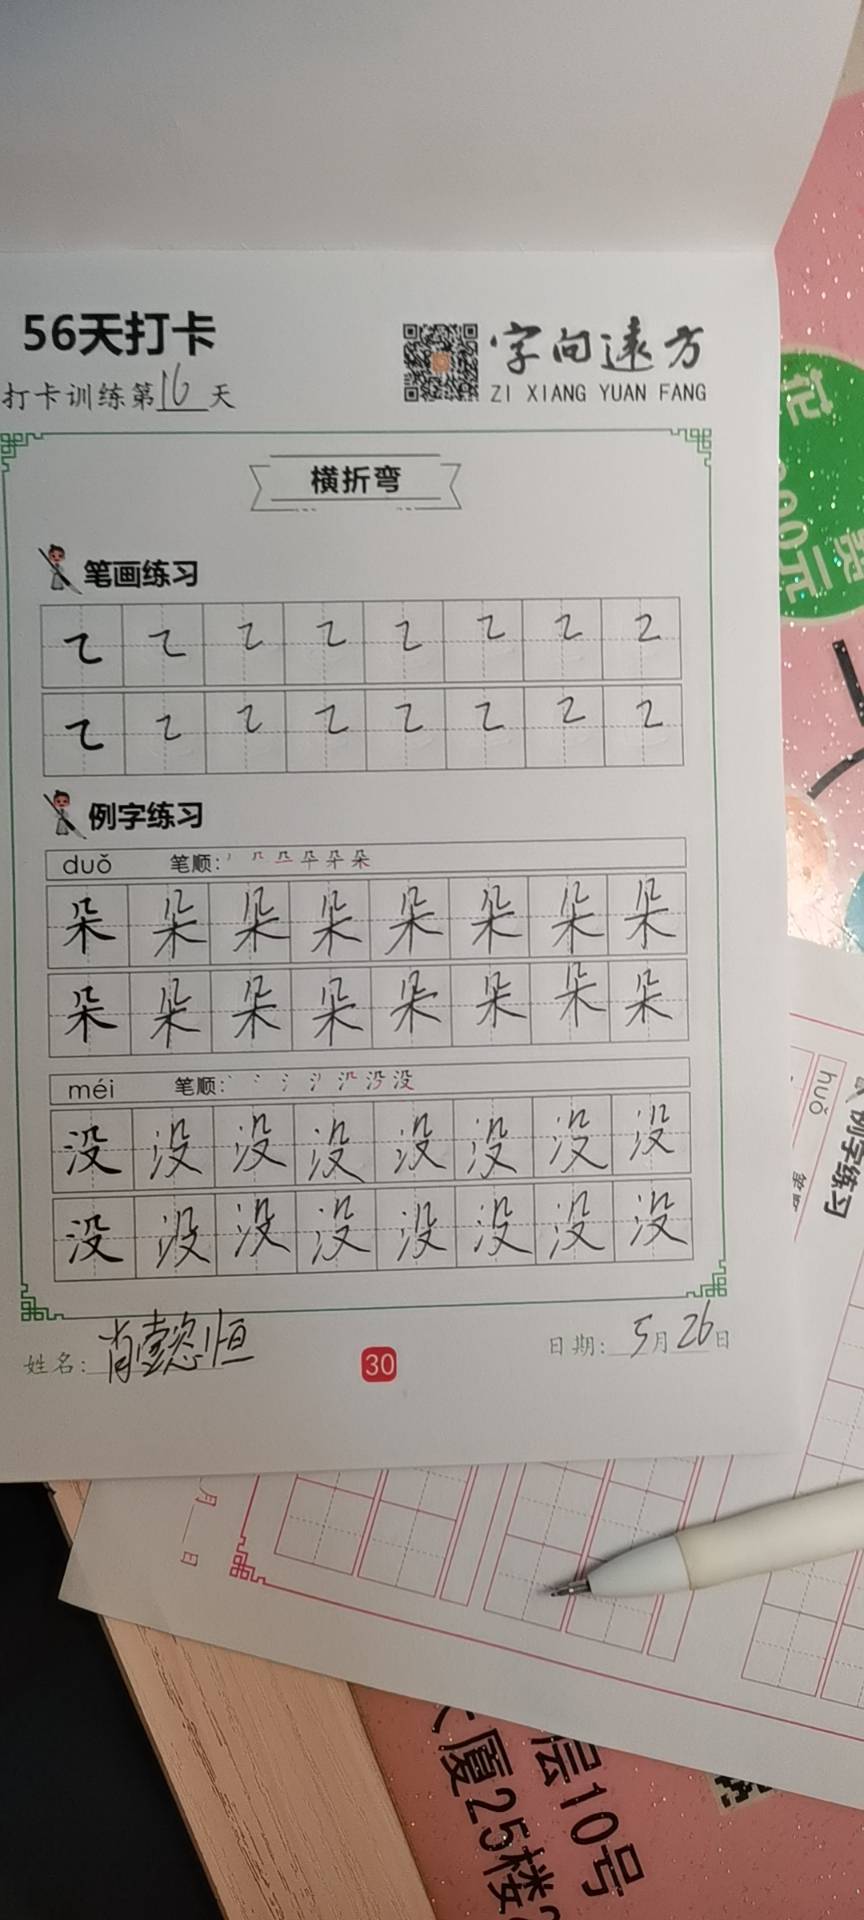 56天打卡
字向遠方
打卡训练第16天
ZI XIANG YUAN FANG
横折弯
笔画练习
例字练习
duǒ 笔顺:
朵 朵 朵 朵 朵 朵 朵 朵
朵 朵 朵 朵 朵 朵 朵 朵
méi 笔顺:
没 没 没 没 没 没 没 没
没 没 没 没 没 没 没 没
姓名: 肖懿恒
30
日期: 5月26日
huǒ
例字练习
月 日
层10号
厦25楼